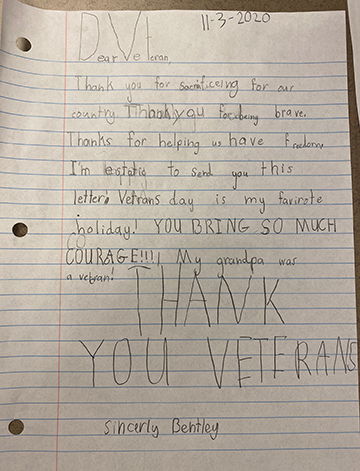 11-3-2020
Dear Veteran,
Thank you for sacrificeing for our
country. Thank you for being brave.
Thanks for helping us have freedom.
I'm to send you this
letter! Vetrans day is my favirote
holiday! YOU BRING SO MUCH
COURAGE!!!! My grandpa was
a vetran!
THANK
YOU VETERANS
Sincerly Bentley